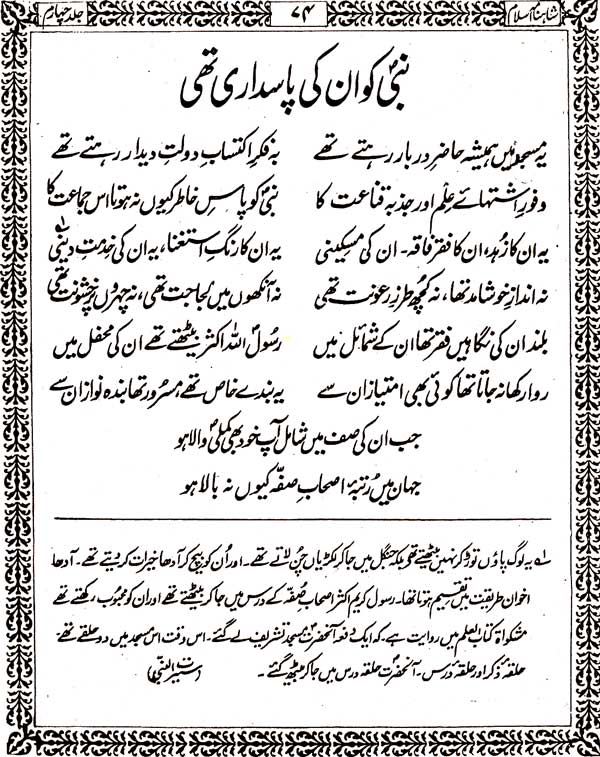 شاہنامہ اسلام ۷۴ جلد چہارم
نبیؐ کو ان کی پاسداری تھی
یہ مسجد میں ہمیشہ حاضرِ دربار رہتے تھے بہ فکرِ اکتسابِ دولتِ دیدار رہتے تھے
وفورِ اشتہائے علم اور جذبہ قناعت کا نبیؐ کو پاسِ خاطر کیوں نہ ہوتا اس جماعت کا
یہ ان کا زُہد، ان کا فقر فاقہ۔ ان کی مسکینی یہ ان کا رنگِ استغنا، یہ ان کی خدمتِ دینی ۱
نہ اندازِ خوشامد تھا، نہ کچھ طرزِ رعونت تھی نہ آنکھوں میں لجاجت تھی، نہ چہروں پر خشونت تھی
بلند ان کی نگاہیں فقر تھا ان کے شمائل میں رسولؐ اللہ اکثر بیٹھتے تھے ان کی محفل میں
روا رکھا نہ جاتا تھا کوئی بھی امتیاز ان سے یہ بندے خاص تھے، مسرور تھا بندہ نواز ان سے
جب ان کی صف میں شامل آپ خود بھی کملیؐ والا ہو
جہان میں رُتبۂ اصحابِ صفّہ کیوں نہ بالا ہو
۱ یہ لوگ پاؤں توڑ کر نہیں بیٹھتے تھے بلکہ جنگل میں جا کر لکڑیاں چُن لاتے تھے۔ اور اُن کو بیچ کر آدھا خیرات کر دیتے تھے۔ آدھا
اخوان طریقت میں تقسیم ہوتا تھا۔ رسول کریم اکثر اصحاب صُفّہ کے درس میں جا کر بیٹھتے تھے اور ان کو محبوب رکھتے تھے
مشکواۃ کتاب العلم میں روایت ہے۔ کہ ایک دفعہ آنحضرتؐ مسجد تشریف لے گئے۔ اس وقت اس مسجد میں دو حلقے تھے
حلقۂ ذکر اور حلقۂ درس۔ آنحضرتؐ حلقہ درس میں جا کر بیٹھ گئے۔ (سیرت النبیؐ)